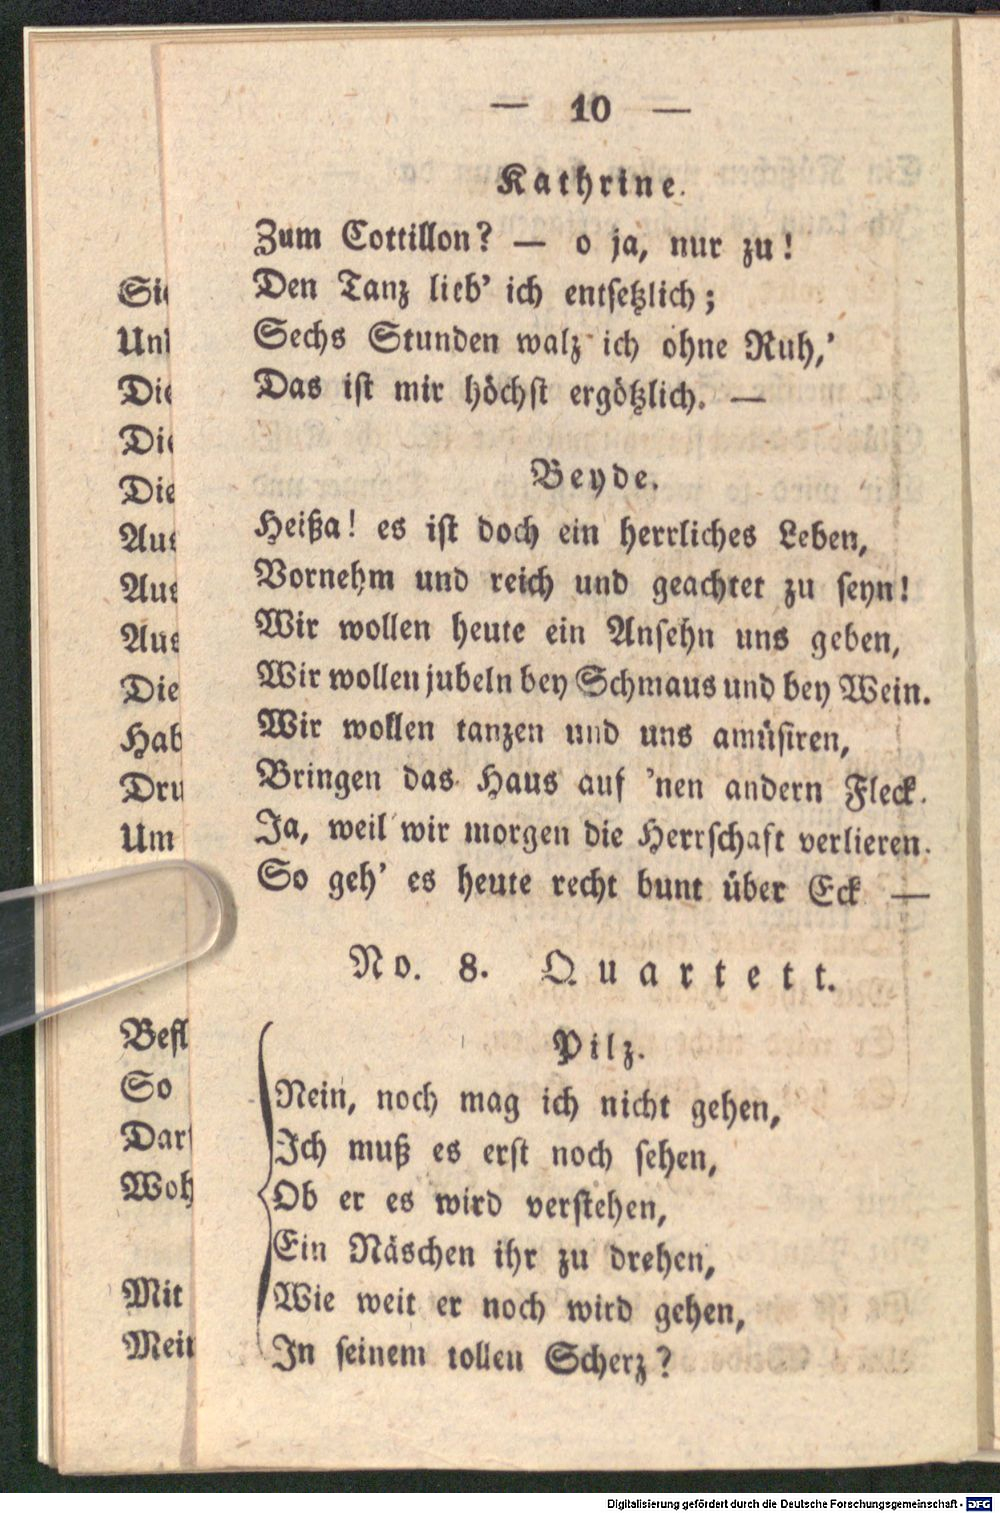 — 10 —
Kathrine.
Zum Cottillon? — o ja, nur zu!
Den Tanz lieb' ich entsetzlich;
Sechs Stunden walz ich ohne Ruh,'
Das ist mir höchst ergötzlich. —
Beyde.
Heißa! es ist doch ein herrliches Leben,
Vornehm und reich und geachtet zu seyn!
Wir wollen heute ein Ansehn uns geben,
Wir wollen jubeln bey Schmaus und bey Wein.
Wir wollen tanzen und uns amüsiren,
Bringen das Haus auf 'nen andern Fleck.
Ja, weil wir morgen die Herrschaft verlieren.
So geh' es heute recht bunt über Eck —
No. 8. Quartett.
Pilz.
Nein, noch mag ich nicht gehen,
Ich muß es erst noch sehen,
Ob er es wird verstehen,
Ein Näschen ihr zu drehen,
Wie weit er noch wird gehen,
In seinem tollen Scherz?
Die
Die
Die
Aus
Aus
Aus
Die
Hab
Dru
Um
So
Woh
Mit
Digitalisierung gefördert durch die Deutsche Forschungsgemeinschaft - DFG